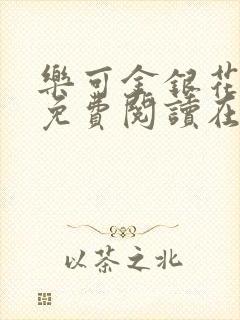 樂可金銀花
免費閱讀在
以茶之北